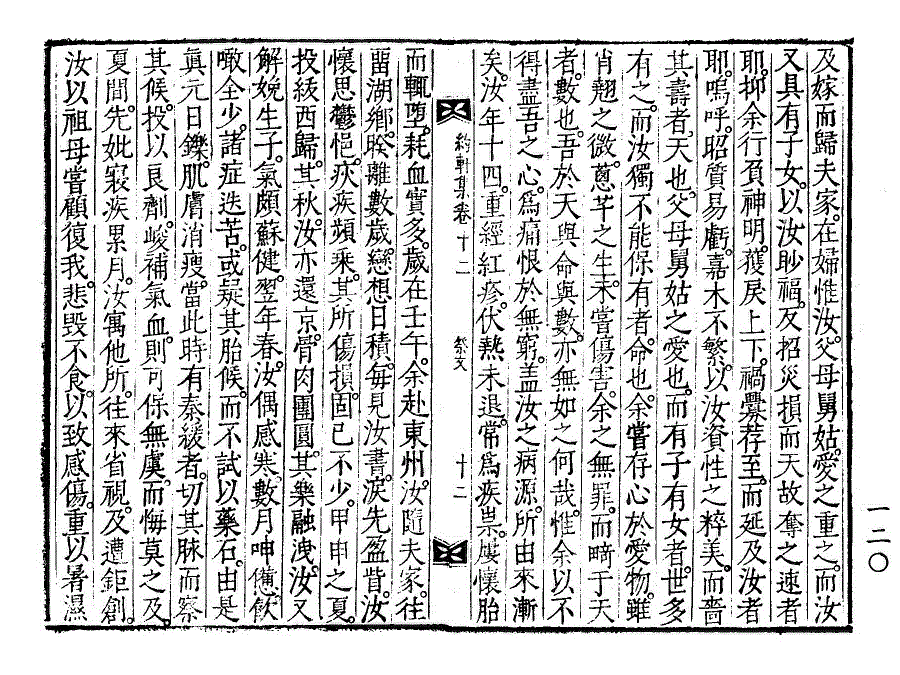 及嫁而歸夫家。在婦惟汝。父母舅姑。愛之重之。而汝
又具有子女。以汝眇福。反招災損。而天故奪之速者
耶。抑余行負神明。獲戾上下。禍釁荐至。而延及汝者
耶。嗚呼。昭質易虧。嘉木不繁。以汝資性之粹美。而嗇
其壽者。天也。父母舅姑之愛也。而有子有女者。世多
有之。而汝獨不能保有者。命也。余嘗存心於愛物。雖
肖翹之微。蔥芊之生。未嘗傷害。余之無罪。而畸于天
者。數也。吾於天與命與數。亦無如之何哉。惟余以不
得盡吾之心。爲痛恨於無窮。盖汝之病源。所由來漸
矣。汝年十四。重經紅疹。伏熱未退。常爲疾祟。屢懷胎
約軒集卷十二 祭文 十二
而輒墮。耗血實多。歲在壬午。余赴東州。汝隨夫家。往
留湖鄕。暌離數歲。戀想日積。每見汝書。淚先盈眥。汝
懷思鬱悒。疢疾頻乘。其所傷損。固已不少。甲申之夏。
投紱西歸。其秋。汝亦還京。骨肉團圓。其樂融洩。汝又
解娩生子。氣頗蘇健。翌年春。汝偶感寒。數月呻憊。飮
噉全少。諸症迭苦。或疑其胎候。而不試以藥石。由是
眞元日鑠。肌膚消瘦。當此時。有秦緩者。切其脉而察
其候。投以良劑。峻補氣血。則可保無虞。而悔莫之及。
夏間。先妣寢疾累月。汝寓他所。往來省視。及遭鉅創。
汝以祖母嘗顧復我。悲毁不食。以致感傷。重以暑濕
一二〇